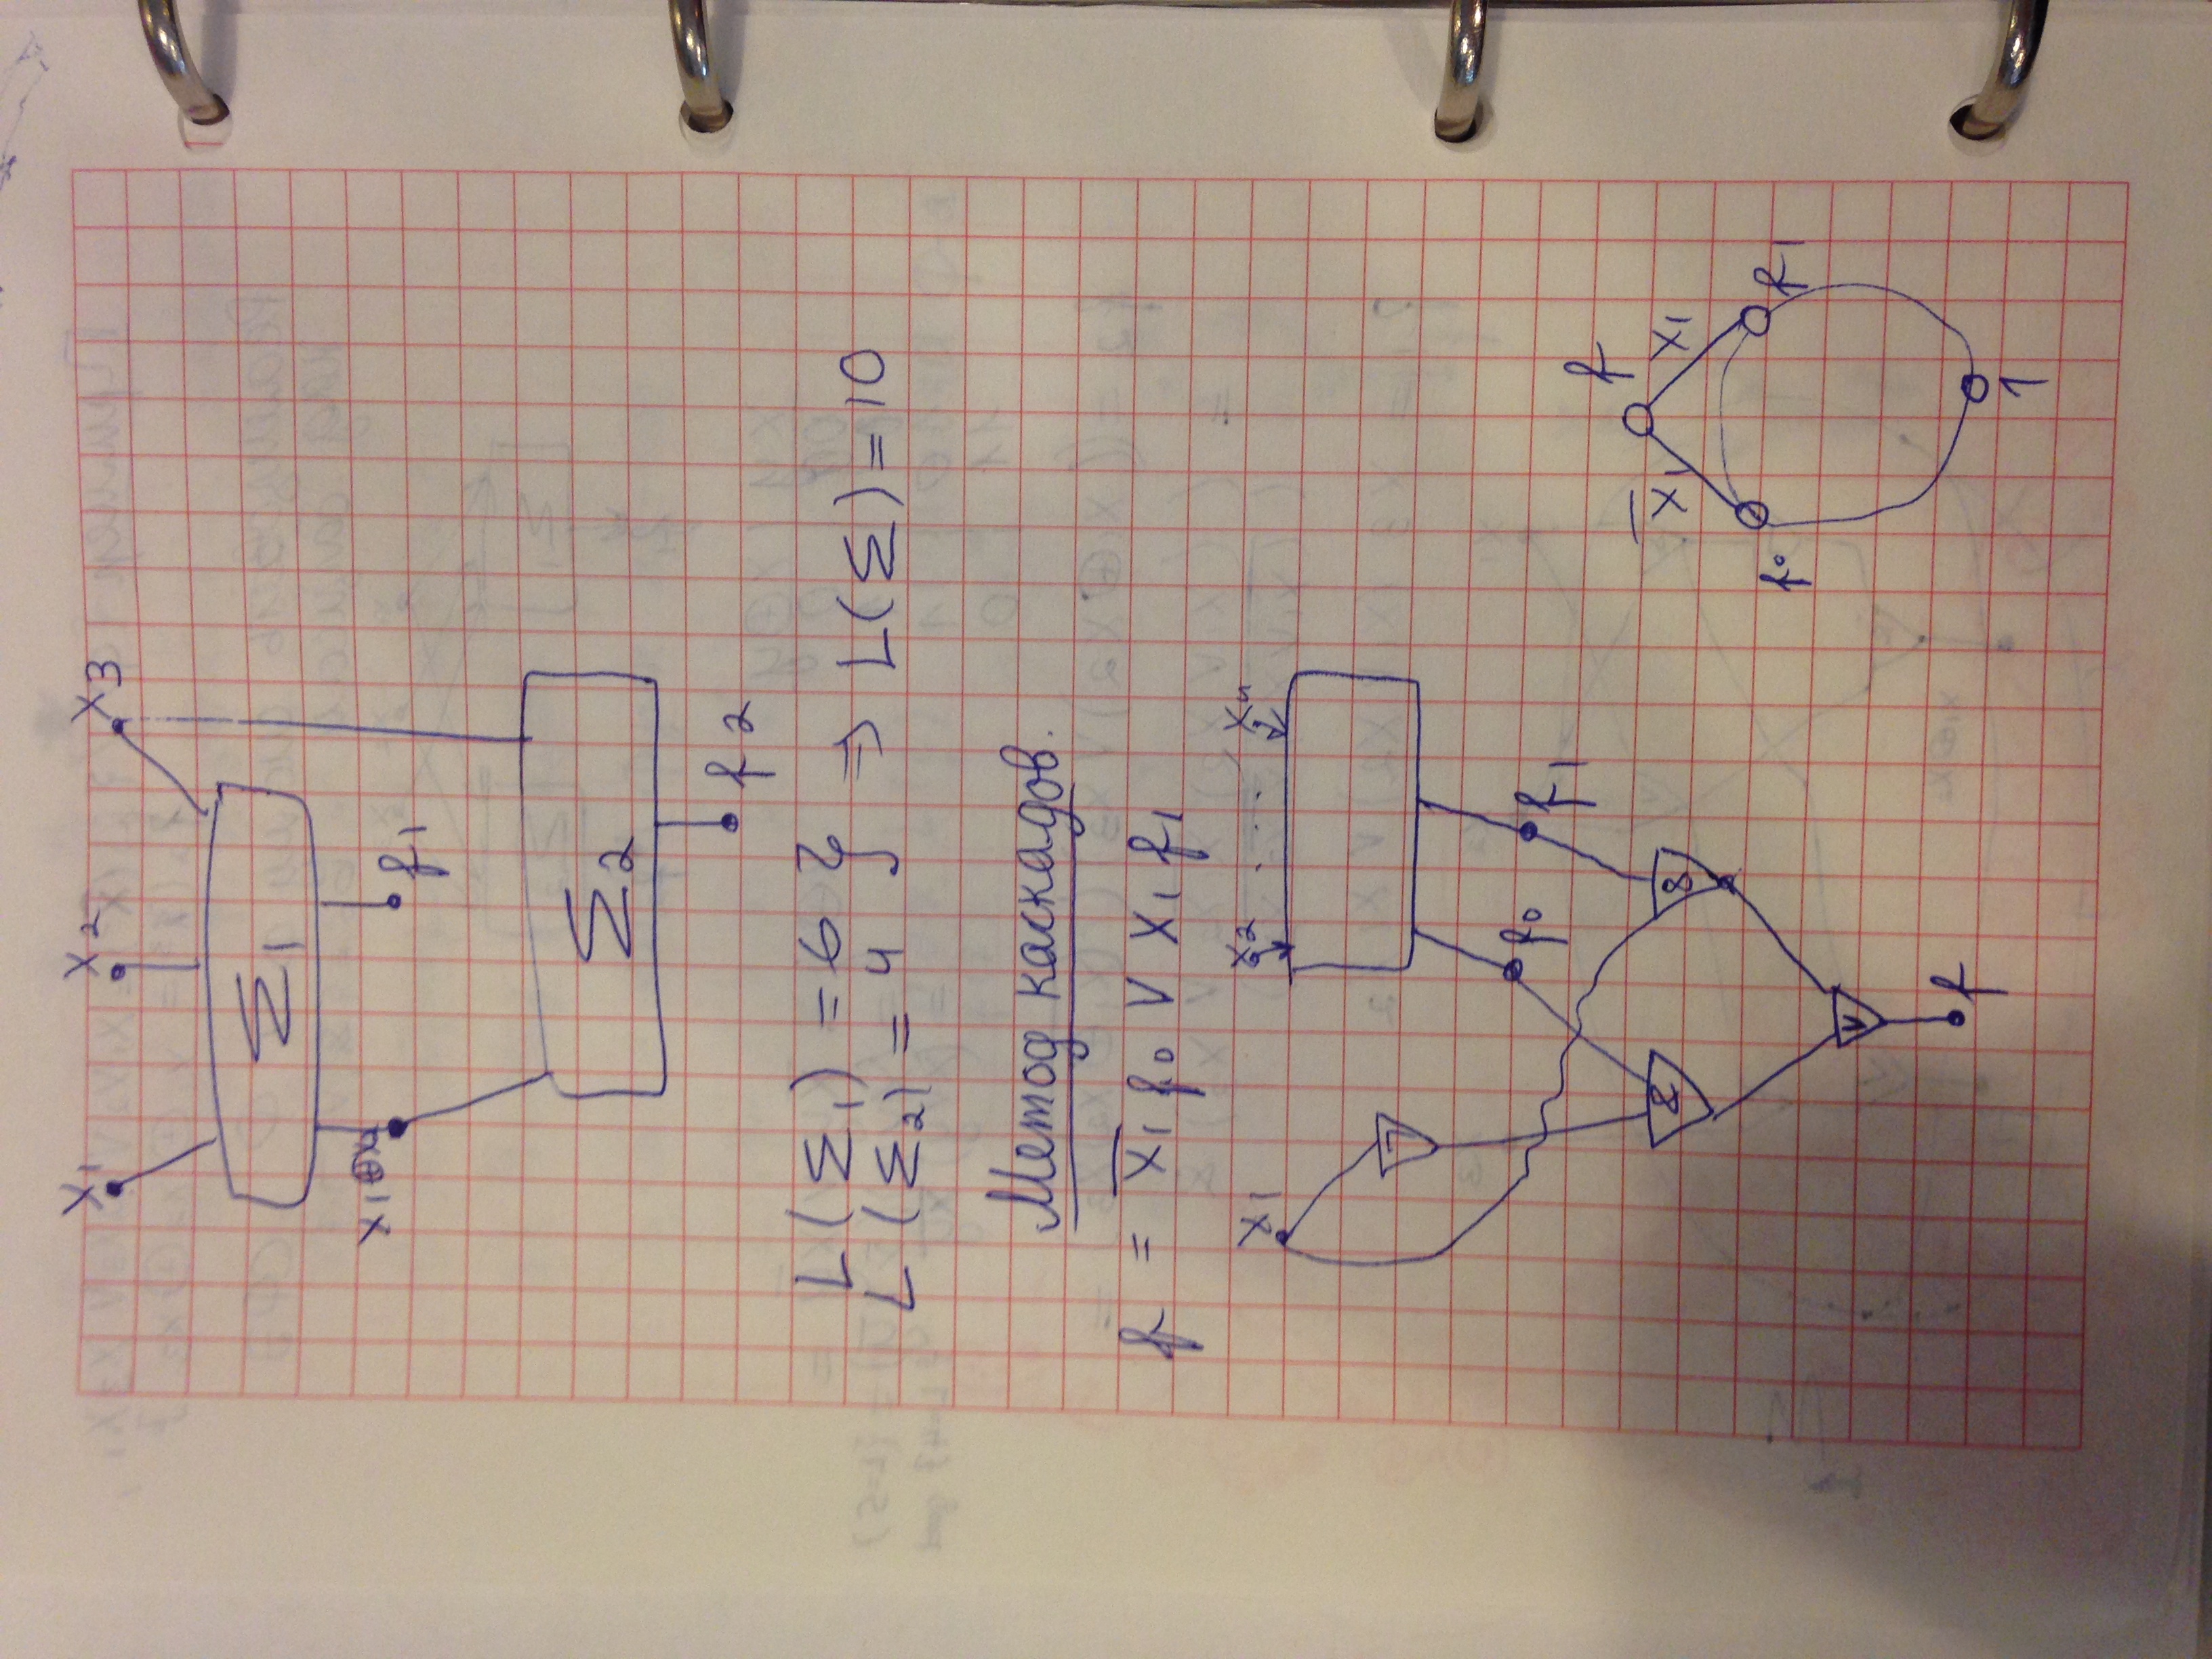 x1 x2 x3
Σ1
x1⊕x2 f1
Σ2
f2
L(Σ1) = 6
L(Σ2) = 4 } ⇒ L(Σ) = 10
Метод каскадов.
f = x̅1 f0 ∨ x1 f1
x1 x2 ... xn
¬
f0 f1
& &
∨
f
f
x̅1 x1
f0 f1
1